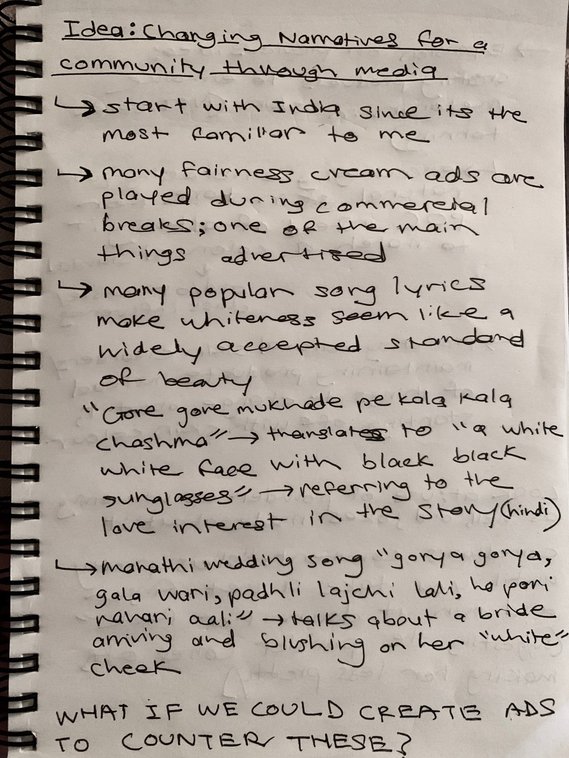 Idea: Changing Narratives for a
community through media
↳ start with India since its the
most familiar to me
↳ many fairness cream ads are
played during commercial
breaks; one of the main
things advertised
↳ many popular song lyrics
make whiteness seem like a
widely accepted standard
of beauty
"Gore gore mukhade pe kala kala
chashma" → translates to "a white
white face with black black
sunglasses" → referring to the
love interest in the story (hindi)
↳ marathi wedding song "gorya gorya,
gala wari, padhli lajchi lali, ho pori
navari aali" → talks about a bride
arriving and blushing on her "white"
cheek
WHAT IF WE COULD CREATE ADS
TO COUNTER THESE?